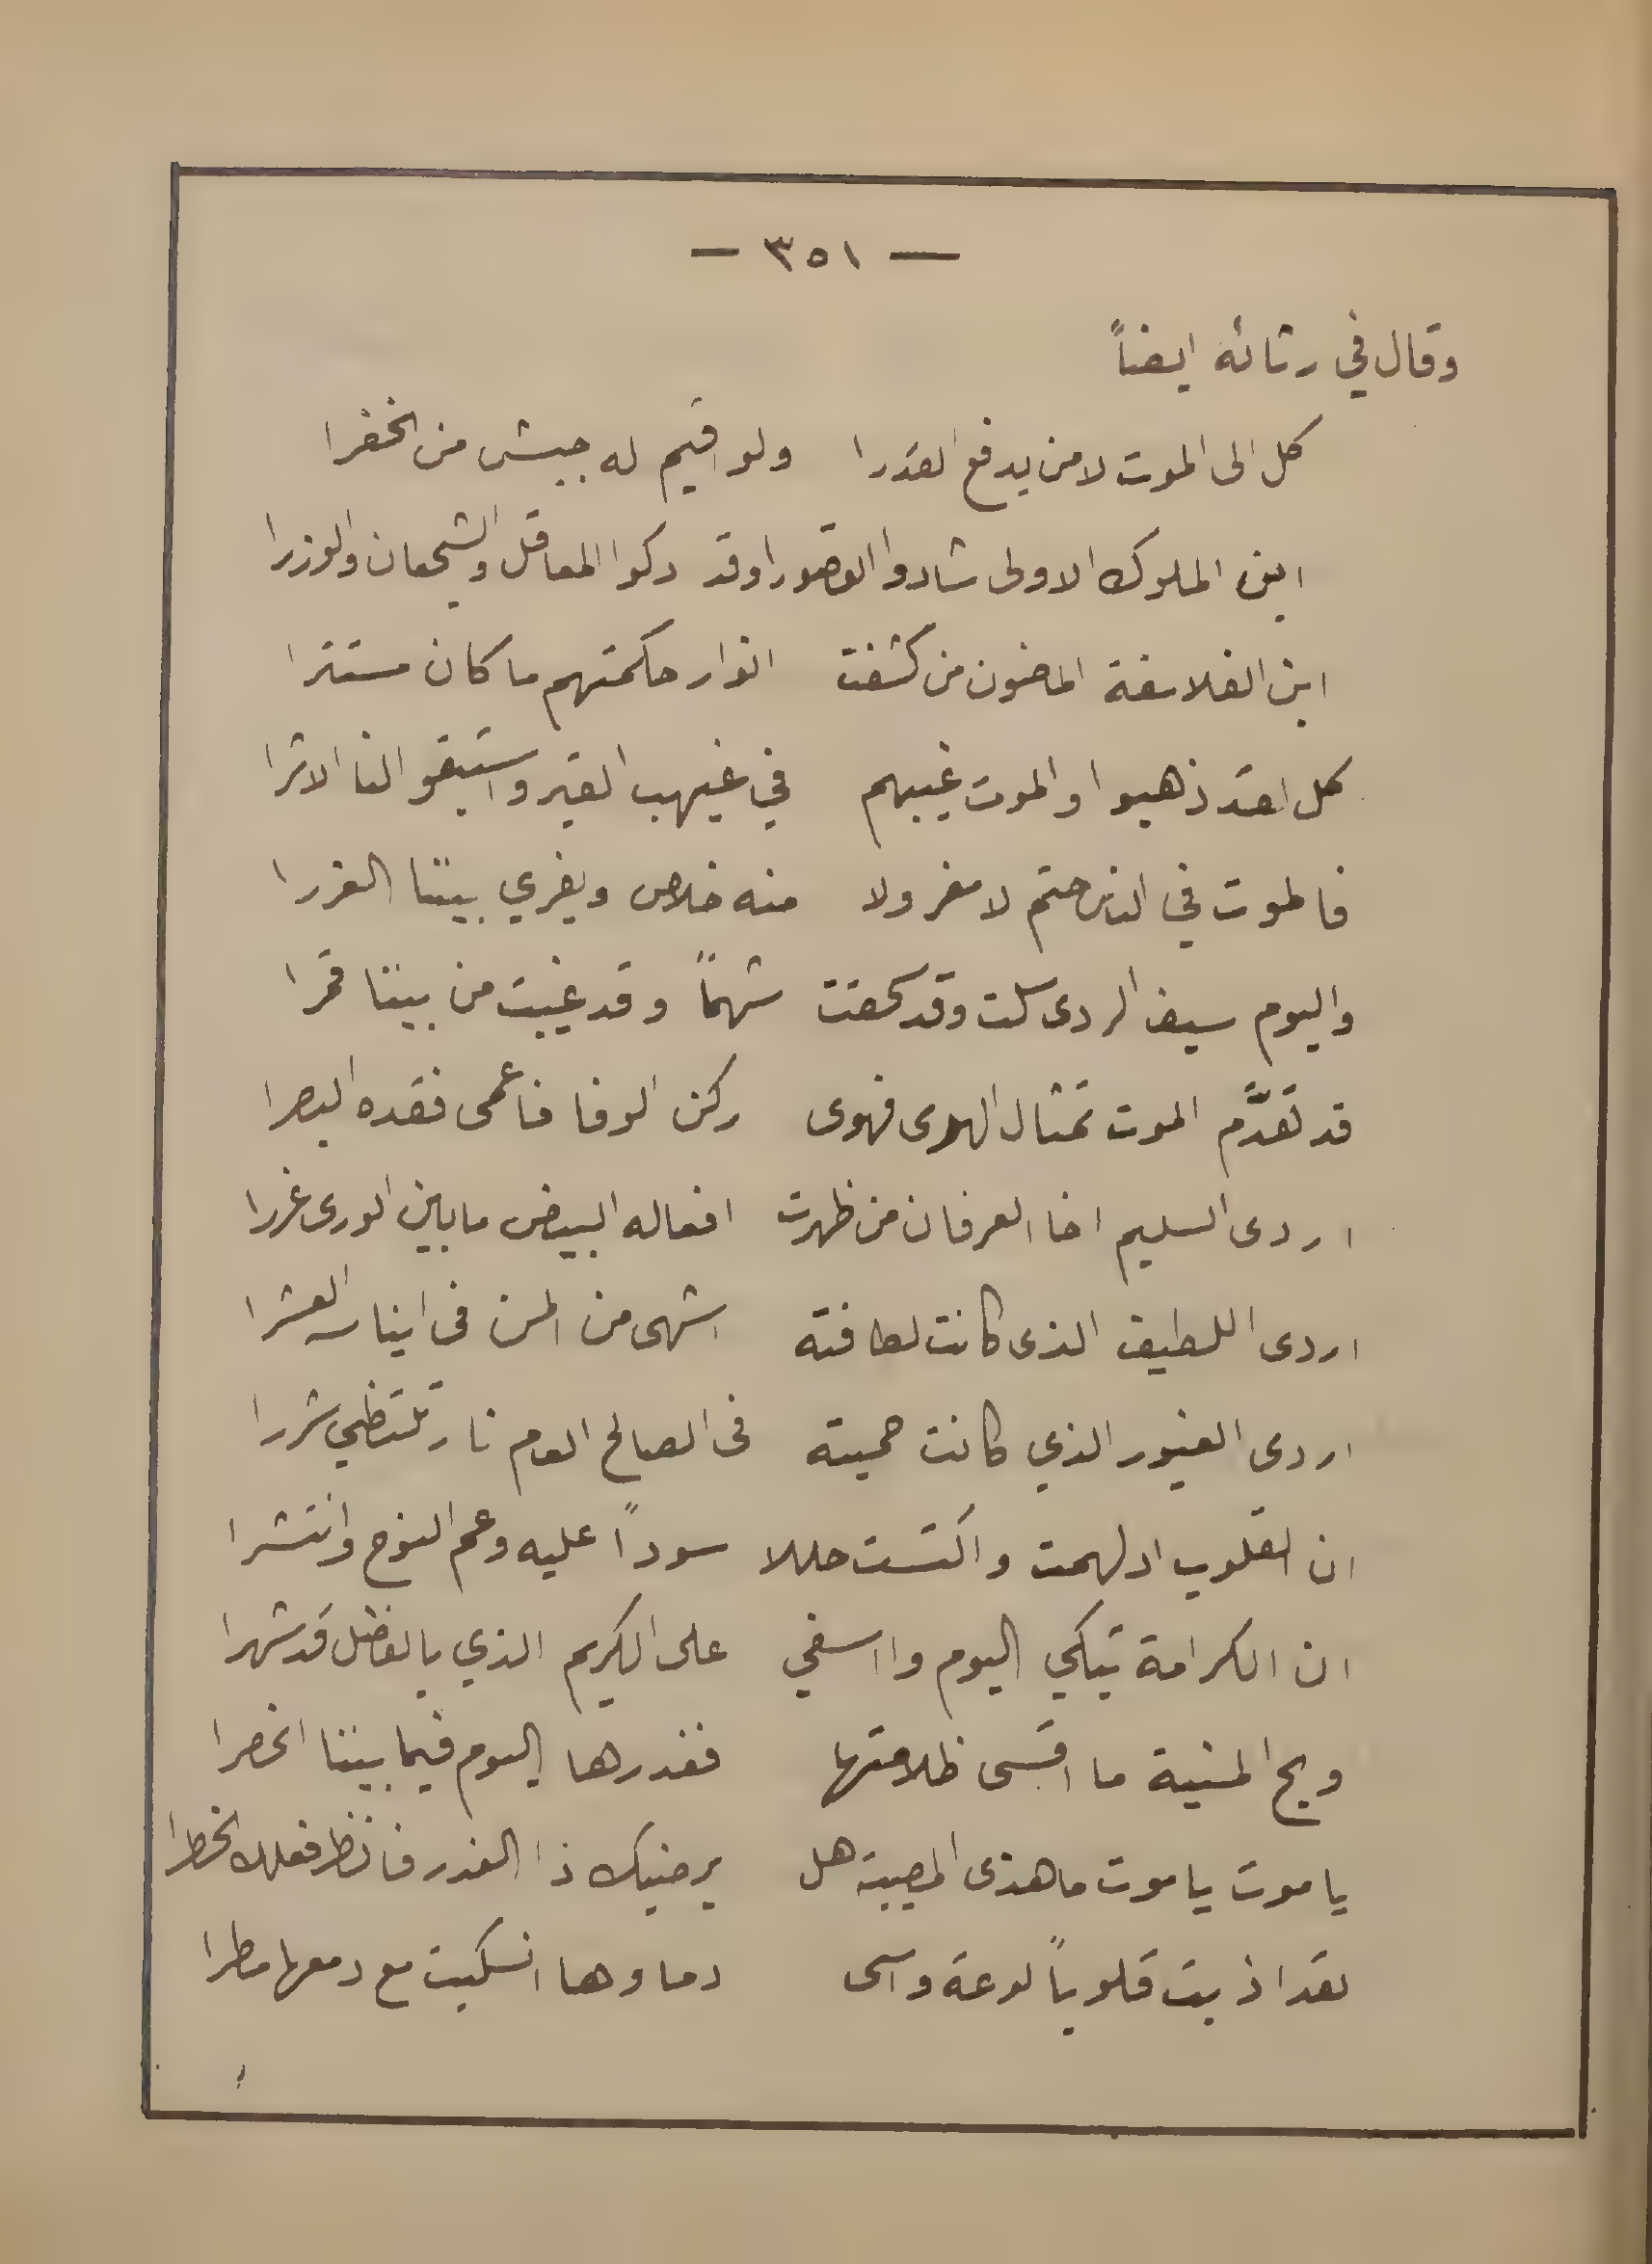 — ٣٥١ —
وقال في رثائه ايضاً
كل الى الموت لا من يدفع القدرا ولو اقيم له جيش من الخفرا
اين الملوك الاولى شادوا القصورا وقد دكوا المعاقل والشجعان والوزرا
اين الفلاسفة الماضون من كشفت انوار حكمتهم ما كان مستترا
كل لقد ذهبوا والموت غيبهم في غيهب القبر واستبقوا لنا الاثرا
فالموت في الناس حتم لا مفر ولا منه خلاص ويفري بيننا الغررا
واليوم سيف الردى سلت وقد محقت شهماً وقد غيبت من بيننا قمرا
قد تقدَّم الموت تمثال الهدى فهوى ركن الوفا فاعمى فقده البصرا
اردى السليم اخا العرفان من ظهرت افعاله البيض ما بين الورى غررا
اردى اللطيف الذى كانت لطافته اشهى من المن فى ايناسه العشرا
اردى الغيور الذي كانت حميته فى الصالح العام نار تلتظي شررا
ان القلوب ادلهمت واكتست حللا سوداً عليه وعم النوح وانتشرا
ان الكرامة تبكي اليوم وا اسفي على الكريم الذي بالفضل قد شهرا
ويح المنية ما اقسى ظلامتها فغدرها اليوم فيما بيننا انحصرا
يا موت يا موت ما هذى المصيبة هل يرضيك ذا الغدر فانظر فعلك الخطرا
لقد اذبت قلوباً لوعة واسى دماوها انسكبت مع دمعها مطرا